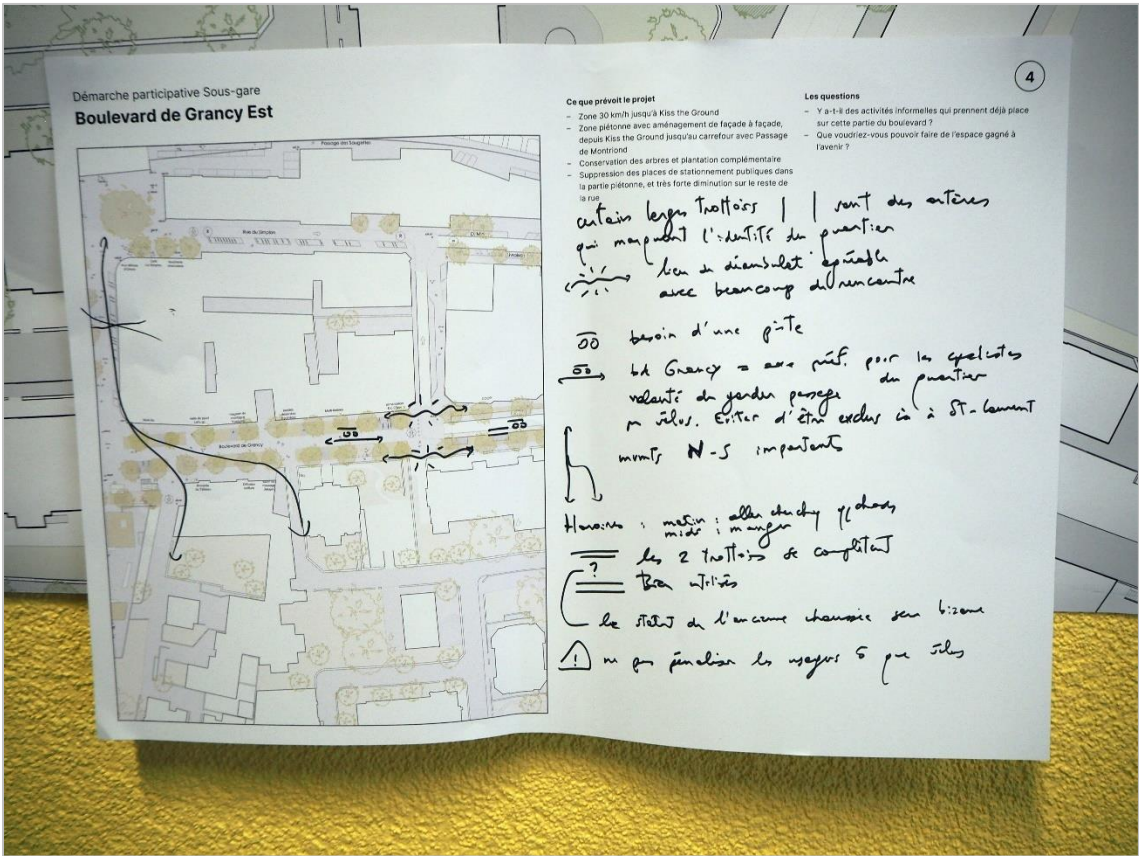 Démarche participative Sous-gare
Boulevard de Grancy Est
4
Ce que prévoit le projet
– Zone 30 km/h jusqu'à Kiss the Ground
– Zone piétonne avec aménagement de façade à façade,
depuis Kiss the Ground jusqu'au carrefour avec Passage
de Montriond
– Conservation des arbres et plantation complémentaire
– Suppression des places de stationnement publiques dans
la partie piétonne, et très forte diminution sur le reste de
la rue
Les questions
– Y a-t-il des activités informelles qui prennent déjà place
sur cette partie du boulevard ?
– Que voudriez-vous pouvoir faire de l'espace gagné à
l'avenir ?
Passage des Saugettes
Rue du Simplon
Boulevard de Grancy
certains larges trottoirs | | sont des artères
qui marquent l'identité du quartier
lieu de agréable
avec beaucoup de rencontre
besoin d'une piste
bd Grancy = axe préf. pour les cyclistes
du quartier
volonté de garder passage
vélos. Eviter d'être exclus à St-Laurent
mvmts N-S importants
Horaires : matin : aller
midi : manger
les 2 trottoirs se complètent
?
Bien utilisés
le statut de l'ancienne chaussée sera bizarre
! ne pas pénaliser les usagers que vélos